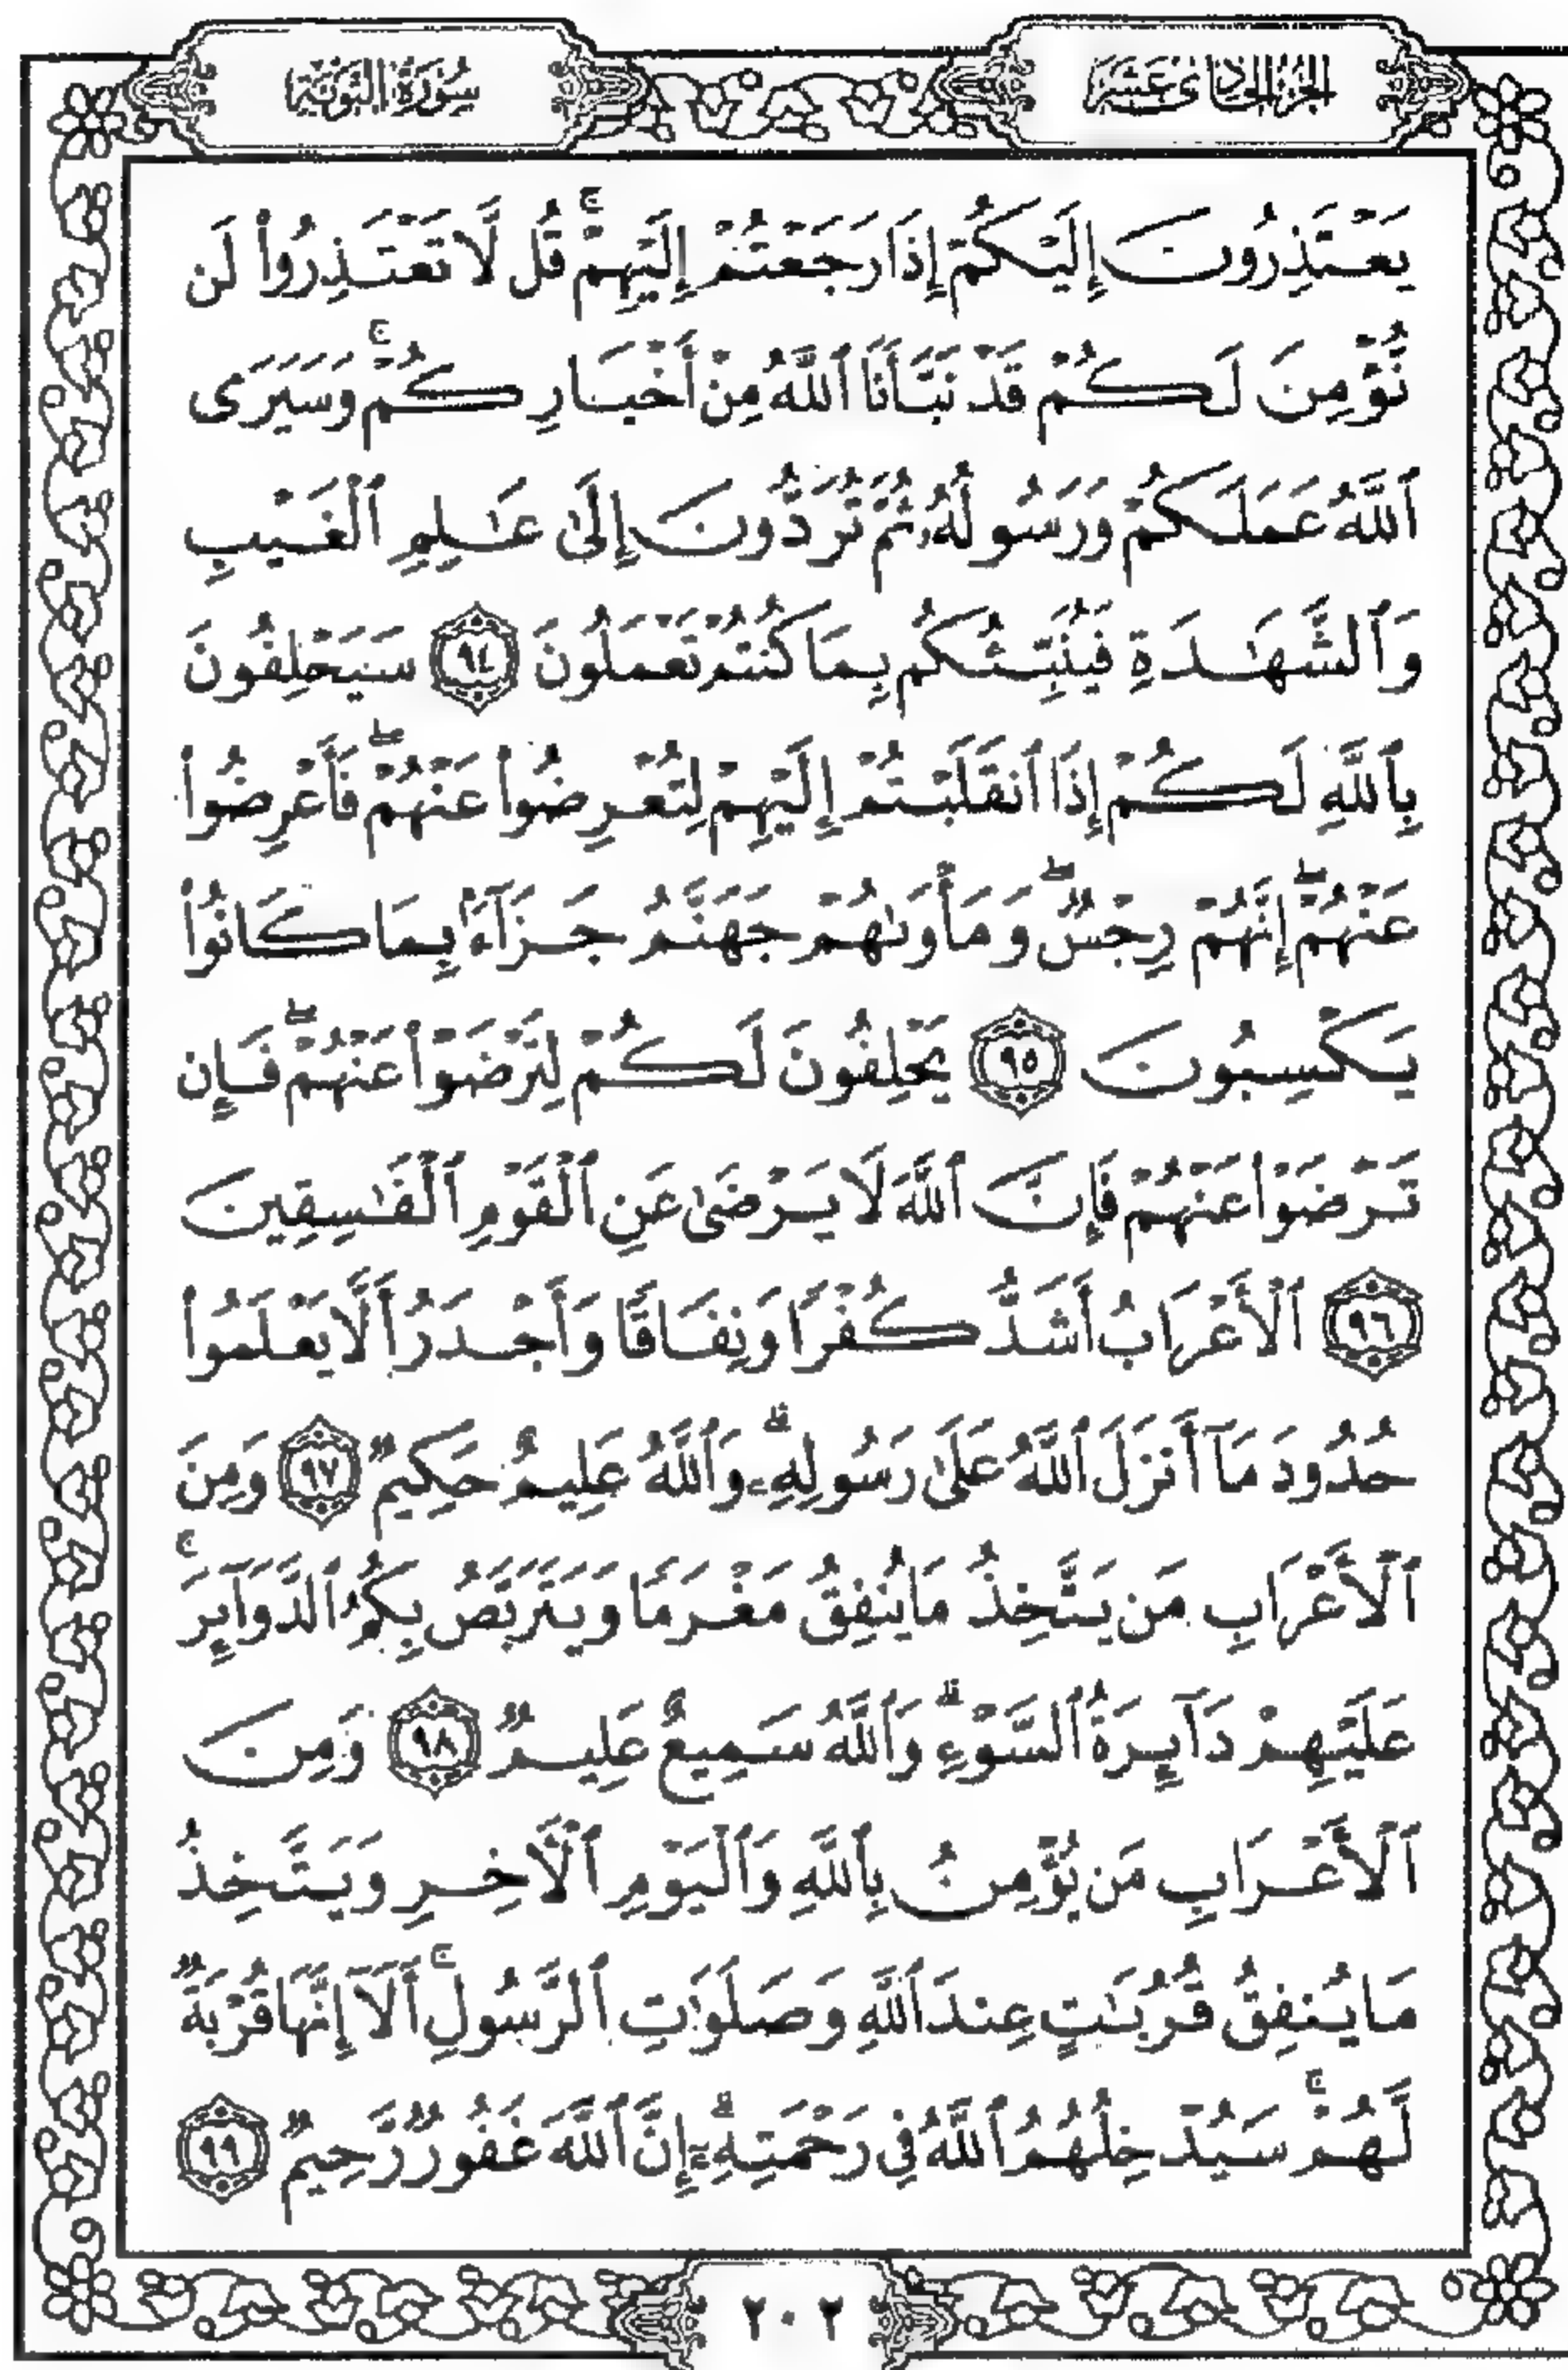 الجزء الحادي عشر
سورة التوبة
يَعْتَذِرُونَ إِلَيْكُمْ إِذَا رَجَعْتُمْ إِلَيْهِمْ ۚ قُل لَّا تَعْتَذِرُوا۟ لَن
نُّؤْمِنَ لَكُمْ قَدْ نَبَّأَنَا ٱللَّهُ مِنْ أَخْبَارِكُمْ ۚ وَسَيَرَى
ٱللَّهُ عَمَلَكُمْ وَرَسُولُهُۥ ثُمَّ تُرَدُّونَ إِلَىٰ عَٰلِمِ ٱلْغَيْبِ
وَٱلشَّهَٰدَةِ فَيُنَبِّئُكُم بِمَا كُنتُمْ تَعْمَلُونَ ﴿٩٤﴾ سَيَحْلِفُونَ
بِٱللَّهِ لَكُمْ إِذَا ٱنقَلَبْتُمْ إِلَيْهِمْ لِتُعْرِضُوا۟ عَنْهُمْ ۖ فَأَعْرِضُوا۟
عَنْهُمْ ۖ إِنَّهُمْ رِجْسٌ ۖ وَمَأْوَىٰهُمْ جَهَنَّمُ جَزَآءًۢ بِمَا كَانُوا۟
يَكْسِبُونَ ﴿٩٥﴾ يَحْلِفُونَ لَكُمْ لِتَرْضَوْا۟ عَنْهُمْ ۖ فَإِن
تَرْضَوْا۟ عَنْهُمْ فَإِنَّ ٱللَّهَ لَا يَرْضَىٰ عَنِ ٱلْقَوْمِ ٱلْفَٰسِقِينَ
﴿٩٦﴾ ٱلْأَعْرَابُ أَشَدُّ كُفْرًا وَنِفَاقًا وَأَجْدَرُ أَلَّا يَعْلَمُوا۟
حُدُودَ مَآ أَنزَلَ ٱللَّهُ عَلَىٰ رَسُولِهِۦ ۗ وَٱللَّهُ عَلِيمٌ حَكِيمٌ ﴿٩٧﴾ وَمِنَ
ٱلْأَعْرَابِ مَن يَتَّخِذُ مَا يُنفِقُ مَغْرَمًا وَيَتَرَبَّصُ بِكُمُ ٱلدَّوَآئِرَ ۚ
عَلَيْهِمْ دَآئِرَةُ ٱلسَّوْءِ ۗ وَٱللَّهُ سَمِيعٌ عَلِيمٌ ﴿٩٨﴾ وَمِنَ
ٱلْأَعْرَابِ مَن يُؤْمِنُ بِٱللَّهِ وَٱلْيَوْمِ ٱلْءَاخِرِ وَيَتَّخِذُ
مَا يُنفِقُ قُرُبَٰتٍ عِندَ ٱللَّهِ وَصَلَوَٰتِ ٱلرَّسُولِ ۚ أَلَآ إِنَّهَا قُرْبَةٌ
لَّهُمْ ۚ سَيُدْخِلُهُمُ ٱللَّهُ فِى رَحْمَتِهِۦٓ ۗ إِنَّ ٱللَّهَ غَفُورٌ رَّحِيمٌ ﴿٩٩﴾
٢٠٢